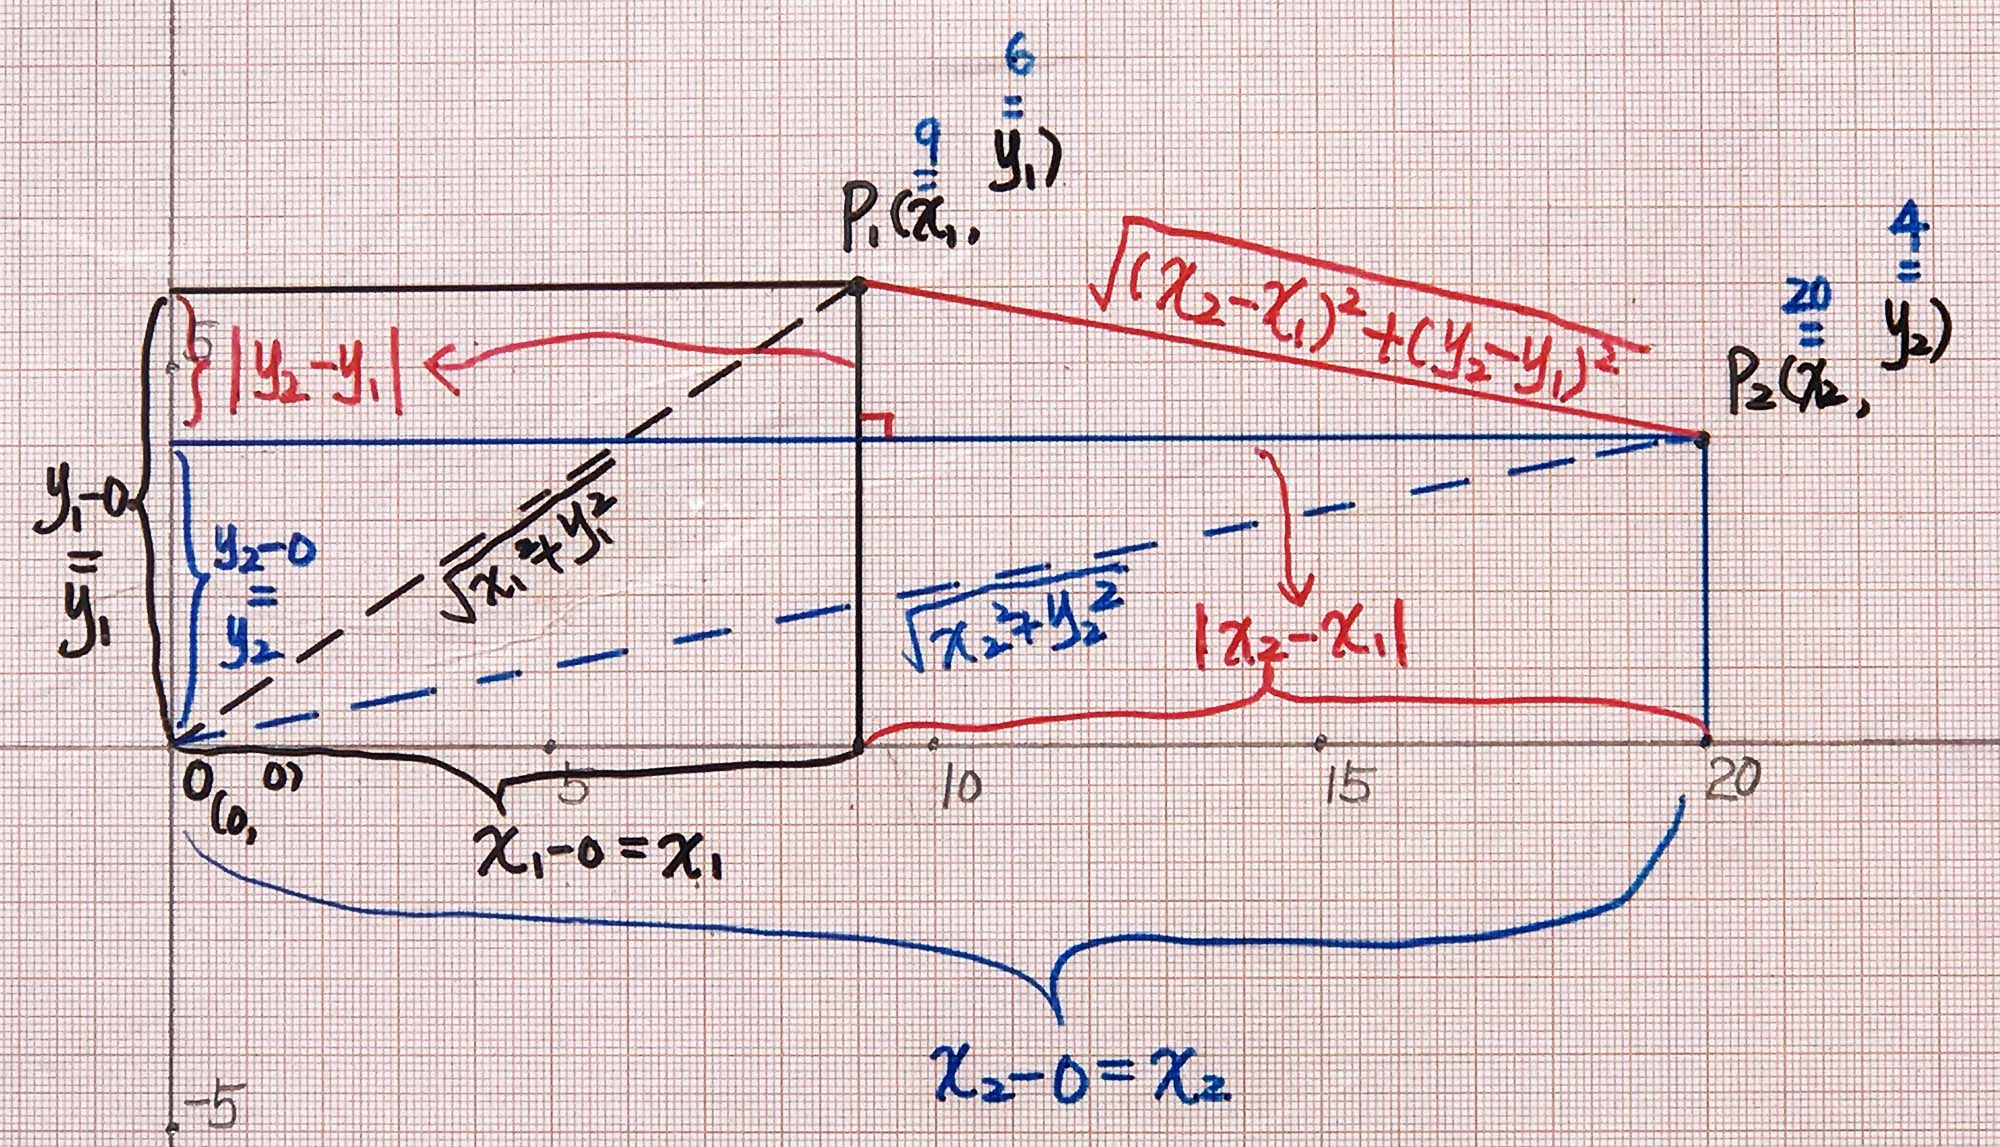 6
=
9
=
P₁(x₁, y₁)
4
=
20
=
P₂(x₂, y₂)
√(x₂-x₁)²+(y₂-y₁)²
5
|y₂-y₁|
y₁-0
=
y₁
y₂-0
=
y₂
√x₁²+y₁²
√x₂²+y₂²
|x₂-x₁|
O(0, 0)
5
10
15
20
x₁-0=x₁
x₂-0=x₂
-5